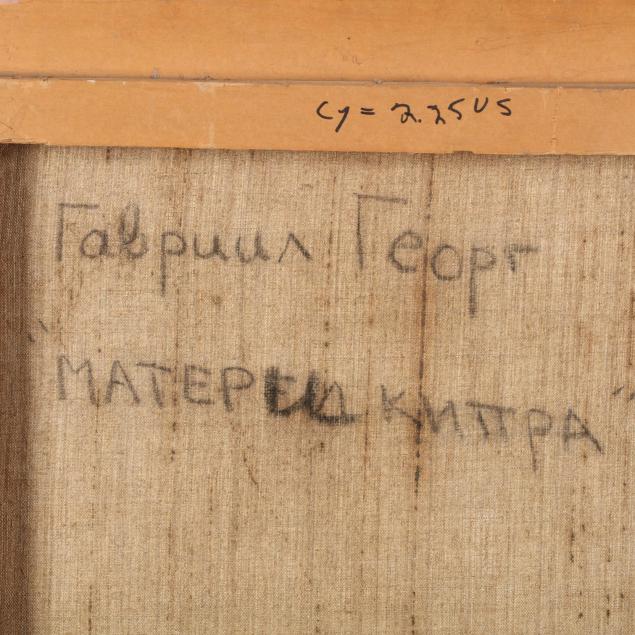 Cy = 2.25 US
Гавриил Георг
"МАТЕРЕЙ КИПРА"